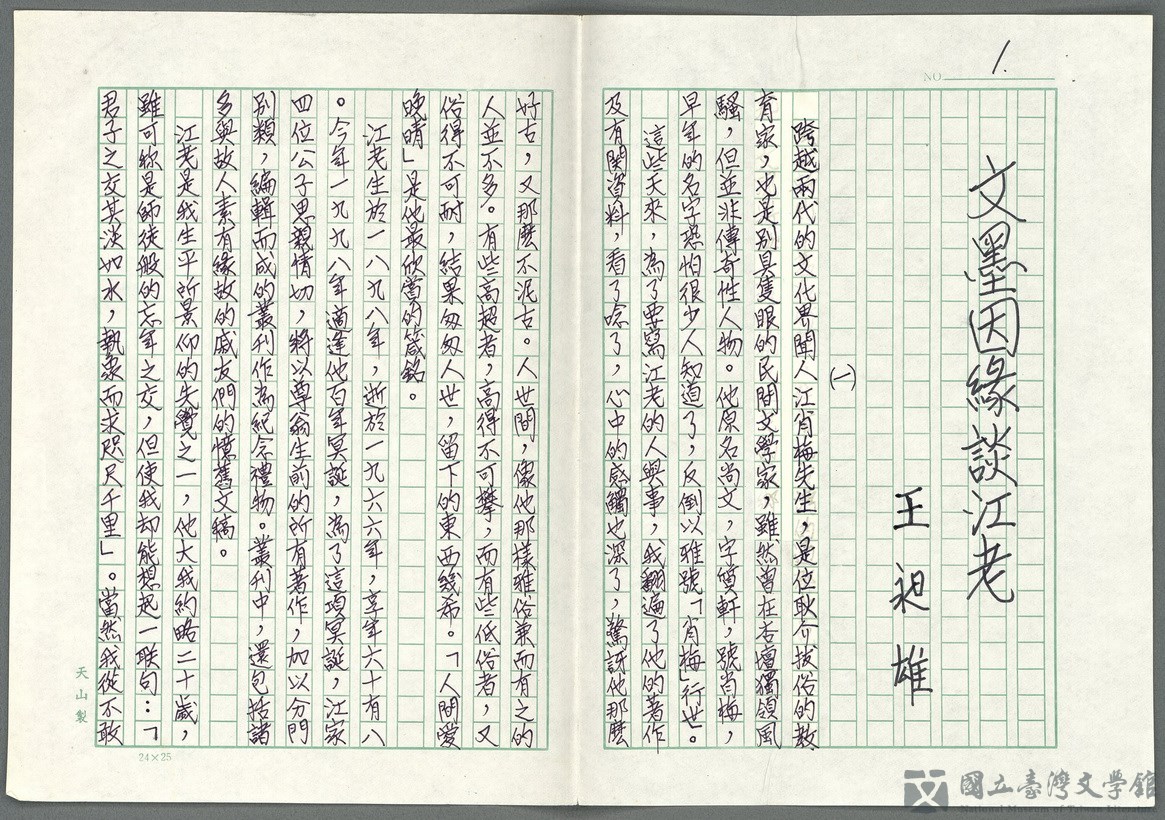 NO 1.
文墨因緣談江老
王昶雄
(一)
跨越兩代的文化界聞人江肖梅先生，是位耿介拔俗的教
育家，也是別具隻眼的民間文學家，雖然曾在杏壇獨領風
騷，但並非傳奇性人物。他原名尚文，字質軒，號肖梅，
早年的名字恐怕很少人知道了，反倒以雅號「肖梅」行世。
這些天來，為了要寫江老的人與事，我翻遍了他的著作
及有関資料，看了唸了，心中的感觸也深了，驚訝他那麼
好古，又那麼不泥古。人世間，像他那樣雅俗兼而有之的
人並不多。有些高超者，高得不可攀，而有些低俗者，又
俗得不可耐，結果匆匆人世，留下的東西幾希。「人間愛
晚晴」是他最欣嘗的箴銘。
江老生於一八九八年，逝於一九六六年，享年六十有八
。今年一九九八年適逢他百年冥誕，為了這項冥誕，江家
四位公子思親情切，將以尊翁生前的所有著作，加以分門
別類，編輯而成的叢刊作為紀念禮物。叢刊中，還包括諸
多與故人素有緣故的戚友們的憶舊文稿。
江老是我生平所景仰的先覺之一，他大我約略二十歲，
雖可称是師徒般的忘年之交，但使我却能想起一联句：「
君子之交其淡如水，執象而求咫尺千里」。當然我從不敢
天山製
24×25
國立臺灣文學館
National Museum of Taiwan Literature